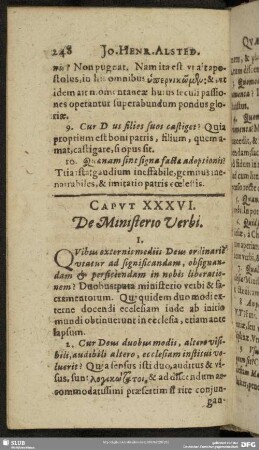 248 Jo. Henr. Alsted.
nia? Non pugnat. Nam ita est vt ait apo-
stolus, in his omnibus ὑπερνικῶμεν: & vt
idem ait momentaneæ huius seculi pas-
siones operantur superabundum pondus glo-
riæ.
9. Cur Deus filios suos castiget? Quia
proprium est boni patris, filium, quem a-
mat, castigare, si opus sit.
10. Quænam sint signa factæ adoptionis?
Tria: stat gaudium ineffabile, gemitus ine-
narrabiles, & imitatio patris cœlestis.
Capvt XXXVI.
De Ministerio Verbi.
1.
Qvibus externis mediis Deus ordinariè
vtatur ad significandam, obsignan-
dam & perficiendam in nobis liberatio-
nem? Duobus: puta ministerio verbi & sa-
cramentorum. Qui quidem duo modi exter-
ne docendi ecclesiam inde ab initio
mundi obtinuerunt in ecclesia, etiam ante
lapsum.
2. Cur Deus duobus modis, altero visi-
bili, audibili altero, ecclesiam institui vo-
luerit? Quia sensus isti duo, auditus & vi-
sus, sunt & ad discendum ac-
commodatissimi præsertim si rite conjun-
gan-
SLUB
DFG